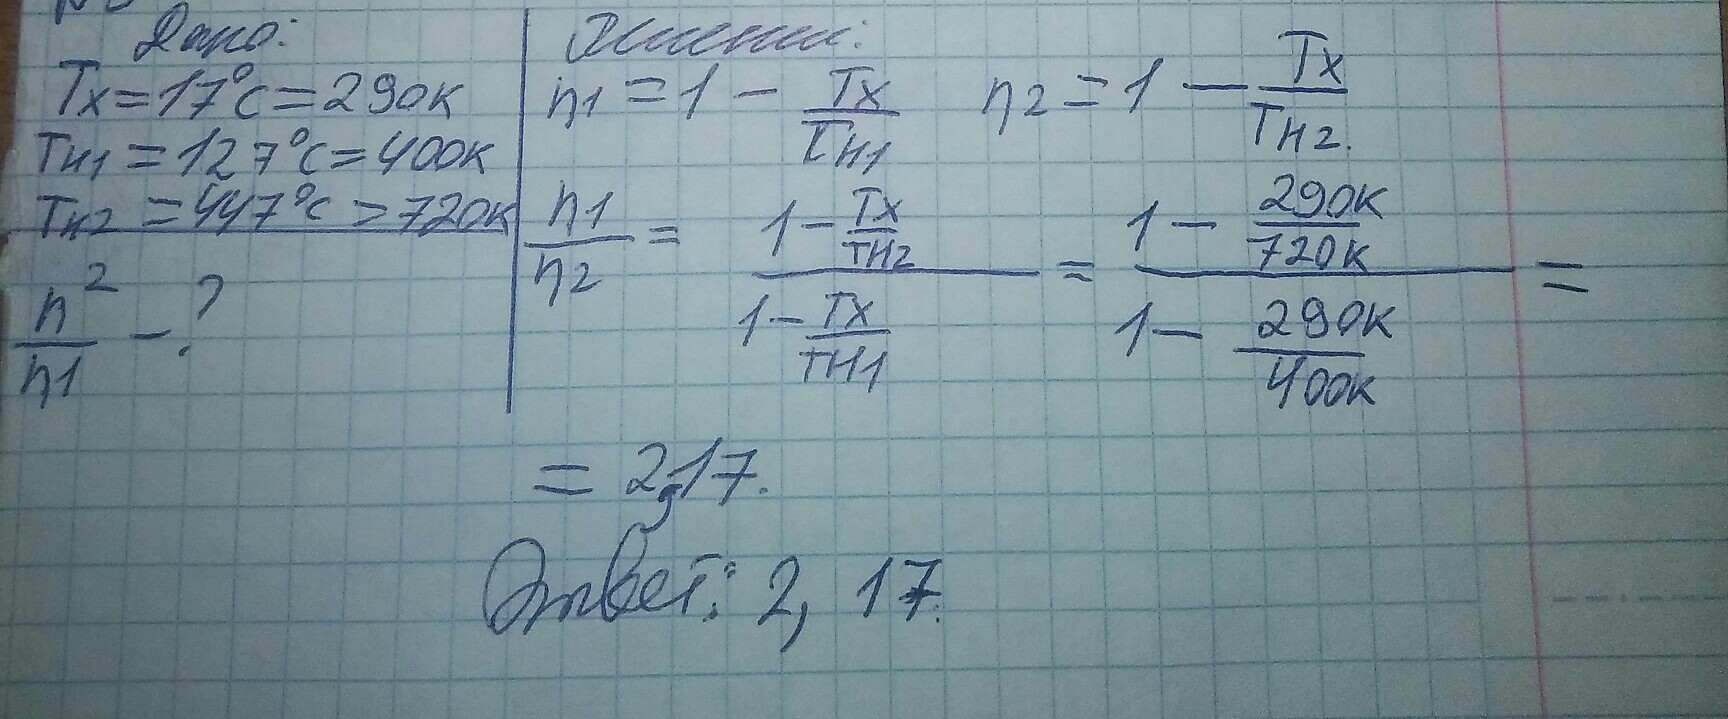 Дано:
Tx = 17°C = 290К
Тн1 = 127°C = 400К
Тн2 = 447°C = 720К
n2/n1 - ?
Решение:
n1 = 1 - Tx/Tн1    n2 = 1 - Tx/Tн2.
n1/n2 = (1 - Tx/Tн2)/(1 - Tx/Tн1) = (1 - 290К/720К)/(1 - 290К/400К) =
= 2,17.
Ответ: 2,17.